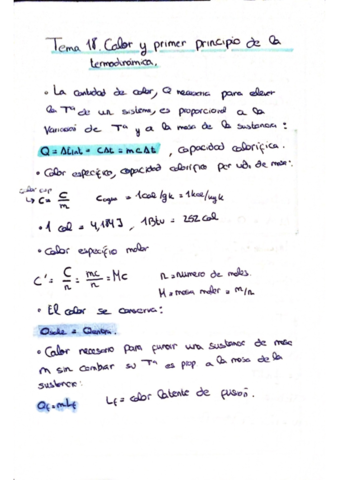 Tema 18. Calor y primer principio de la
termodinámica.
• La cantidad de calor, Q necesaria para elevar
la Tª de un sistema, es proporcional a la
Variación de Tª y a la masa de la sustancia:
Q = ΔEint = CΔt = mcΔt , capacidad calorífica.
• Calor específico, capacidad calorífica por udi. de masa:
calor esp
↳ c = C/m Cagua = 1cal/gk = 1kcal/kgk
• 1 cal = 4,184J , 1Btu = 252 cal
• Calor específico molar
C' = C/n = mc/n = Mc n = número de moles.
M = masa molar = m/n
• El calor se conserva:
Qsale = Qentra.
• Calor necesario para fundir una sustancia de masa
m sin cambiar su Tª es prop a la masa de la
sustancia:
Qf = mLf Lf = calor latente de fusión.